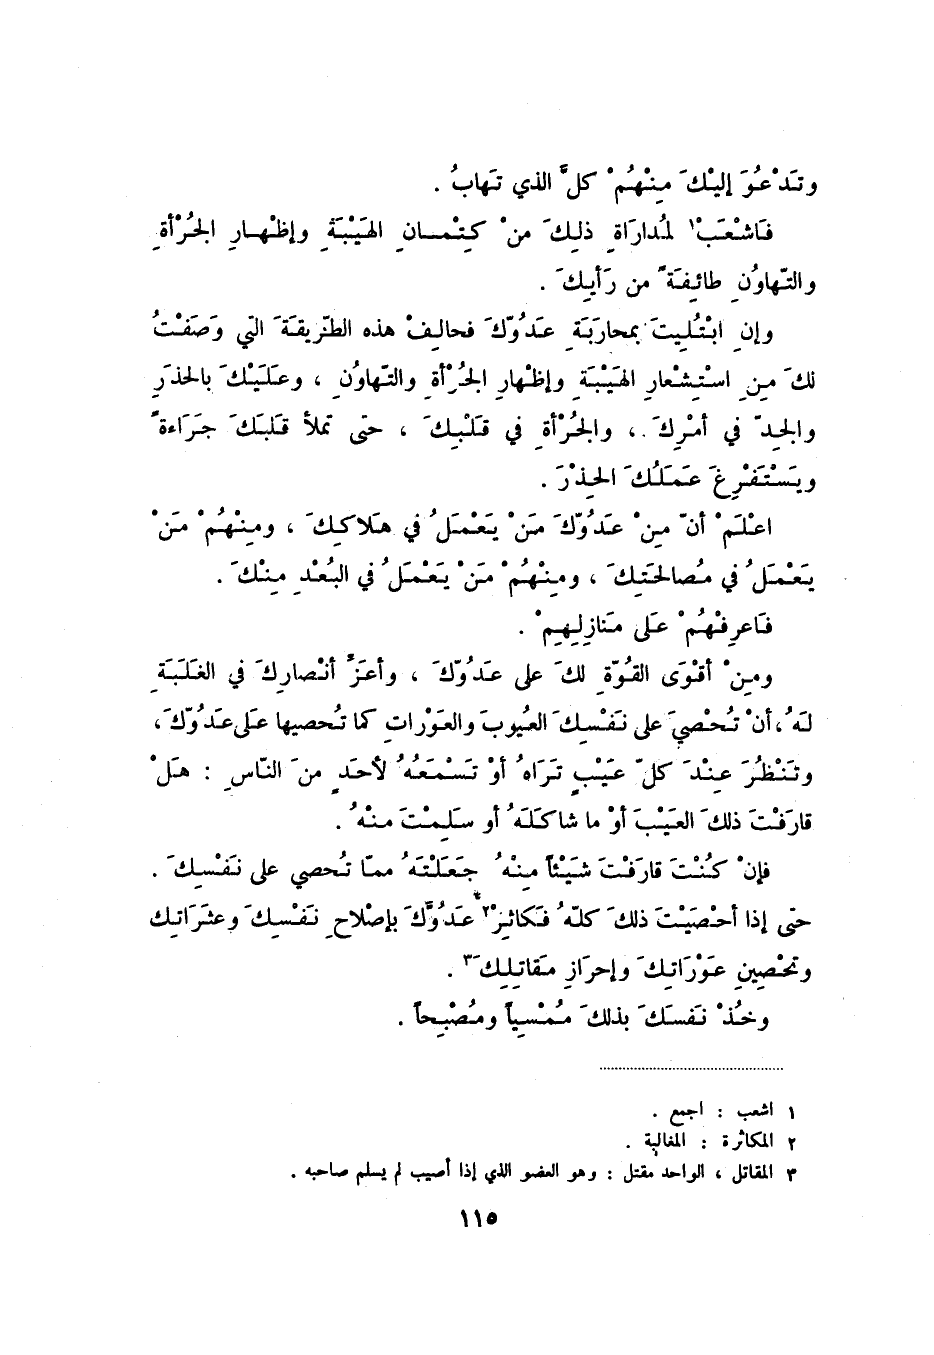 وتَدْعُوَ إليْكَ مِنْهُمْ كلَّ الذي تَهابُ .
فَاشْعَبْ١ لمُداراةِ ذلِكَ منْ كِتْمانِ الهَيْبَةِ وإظْهارِ الجُرْأةِ
والتّهاوُنِ طائِفَةً من رَأيِكَ .
وإنِ ابْتُلِيتَ بمحارَبَةِ عَدُوّكَ فحالِفْ هذه الطّريقَةَ التي وَصَفْتُ
لكَ مِنِ اسْتِشْعارِ الهَيْبَةِ وإظْهارِ الجُرْأةِ والتّهاوُنِ ، وعلَيْكَ بالحذَرِ
والجِدّ في أمْرِكَ ، والجُرْأةِ في قَلْبِكَ ، حتى تملأ قَلبَكَ جَرَاءةً
ويَسْتَفْرِغَ عَمَلُكَ الحِذْرَ .
اعْلَمْ أنّ مِنْ عَدُوّكَ مَنْ يَعْمَلُ في هَلاكِكَ ، ومِنْهُمْ مَنْ
يَعْمَلُ في مُصالحَتِكَ ، ومِنْهُمْ مَنْ يَعْمَلُ في البُعْدِ مِنْكَ .
فَاعرِفْهُمْ عَلى مَنَازِلِهِمْ .
ومِنْ أقْوَى القُوّةِ لكَ على عَدُوّكَ ، وأعَزّ أنْصارِكَ في الغَلَبَةِ
لهُ ، أنْ تُحْصِيَ على نَفْسِكَ العُيوبَ والعَوْراتِ كما تُحصيها عَلى عَدُوّكَ ،
وتَنْظُرَ عِنْدَ كلّ عَيْبٍ تَرَاهُ أوْ تَسْمَعُهُ لأحَدٍ منَ النّاسِ : هَلْ
قارَفْتَ ذلكَ العَيْبَ أوْ ما شاكَلَهُ أو سَلِمْتَ منْهُ .
فإنْ كُنْتَ قارَفْتَ شَيْئاً مِنْهُ جَعَلْتَهُ ممّا تُحصي على نَفْسِكَ .
حتى إذا أحْصَيْتَ ذلكَ كلّهُ فَكاثِرْ٢* عَدُوَّكَ بإصْلاحِ نَفْسِكَ وعثَرَاتِكَ
وتحْصِينِ عَوْرَاتِكَ وإحرَازِ مَقاتِلِكَ٣ .
وخُذْ نَفسَكَ بذلكَ مُمْسِياً ومُصْبِحاً .
١ اشعب : اجمع .
٢ المكاثرة : المغالبة .
٣ المقاتل ، الواحد مقتل : وهو العضو الذي إذا أصيب لم يسلم صاحبه .
١١٥